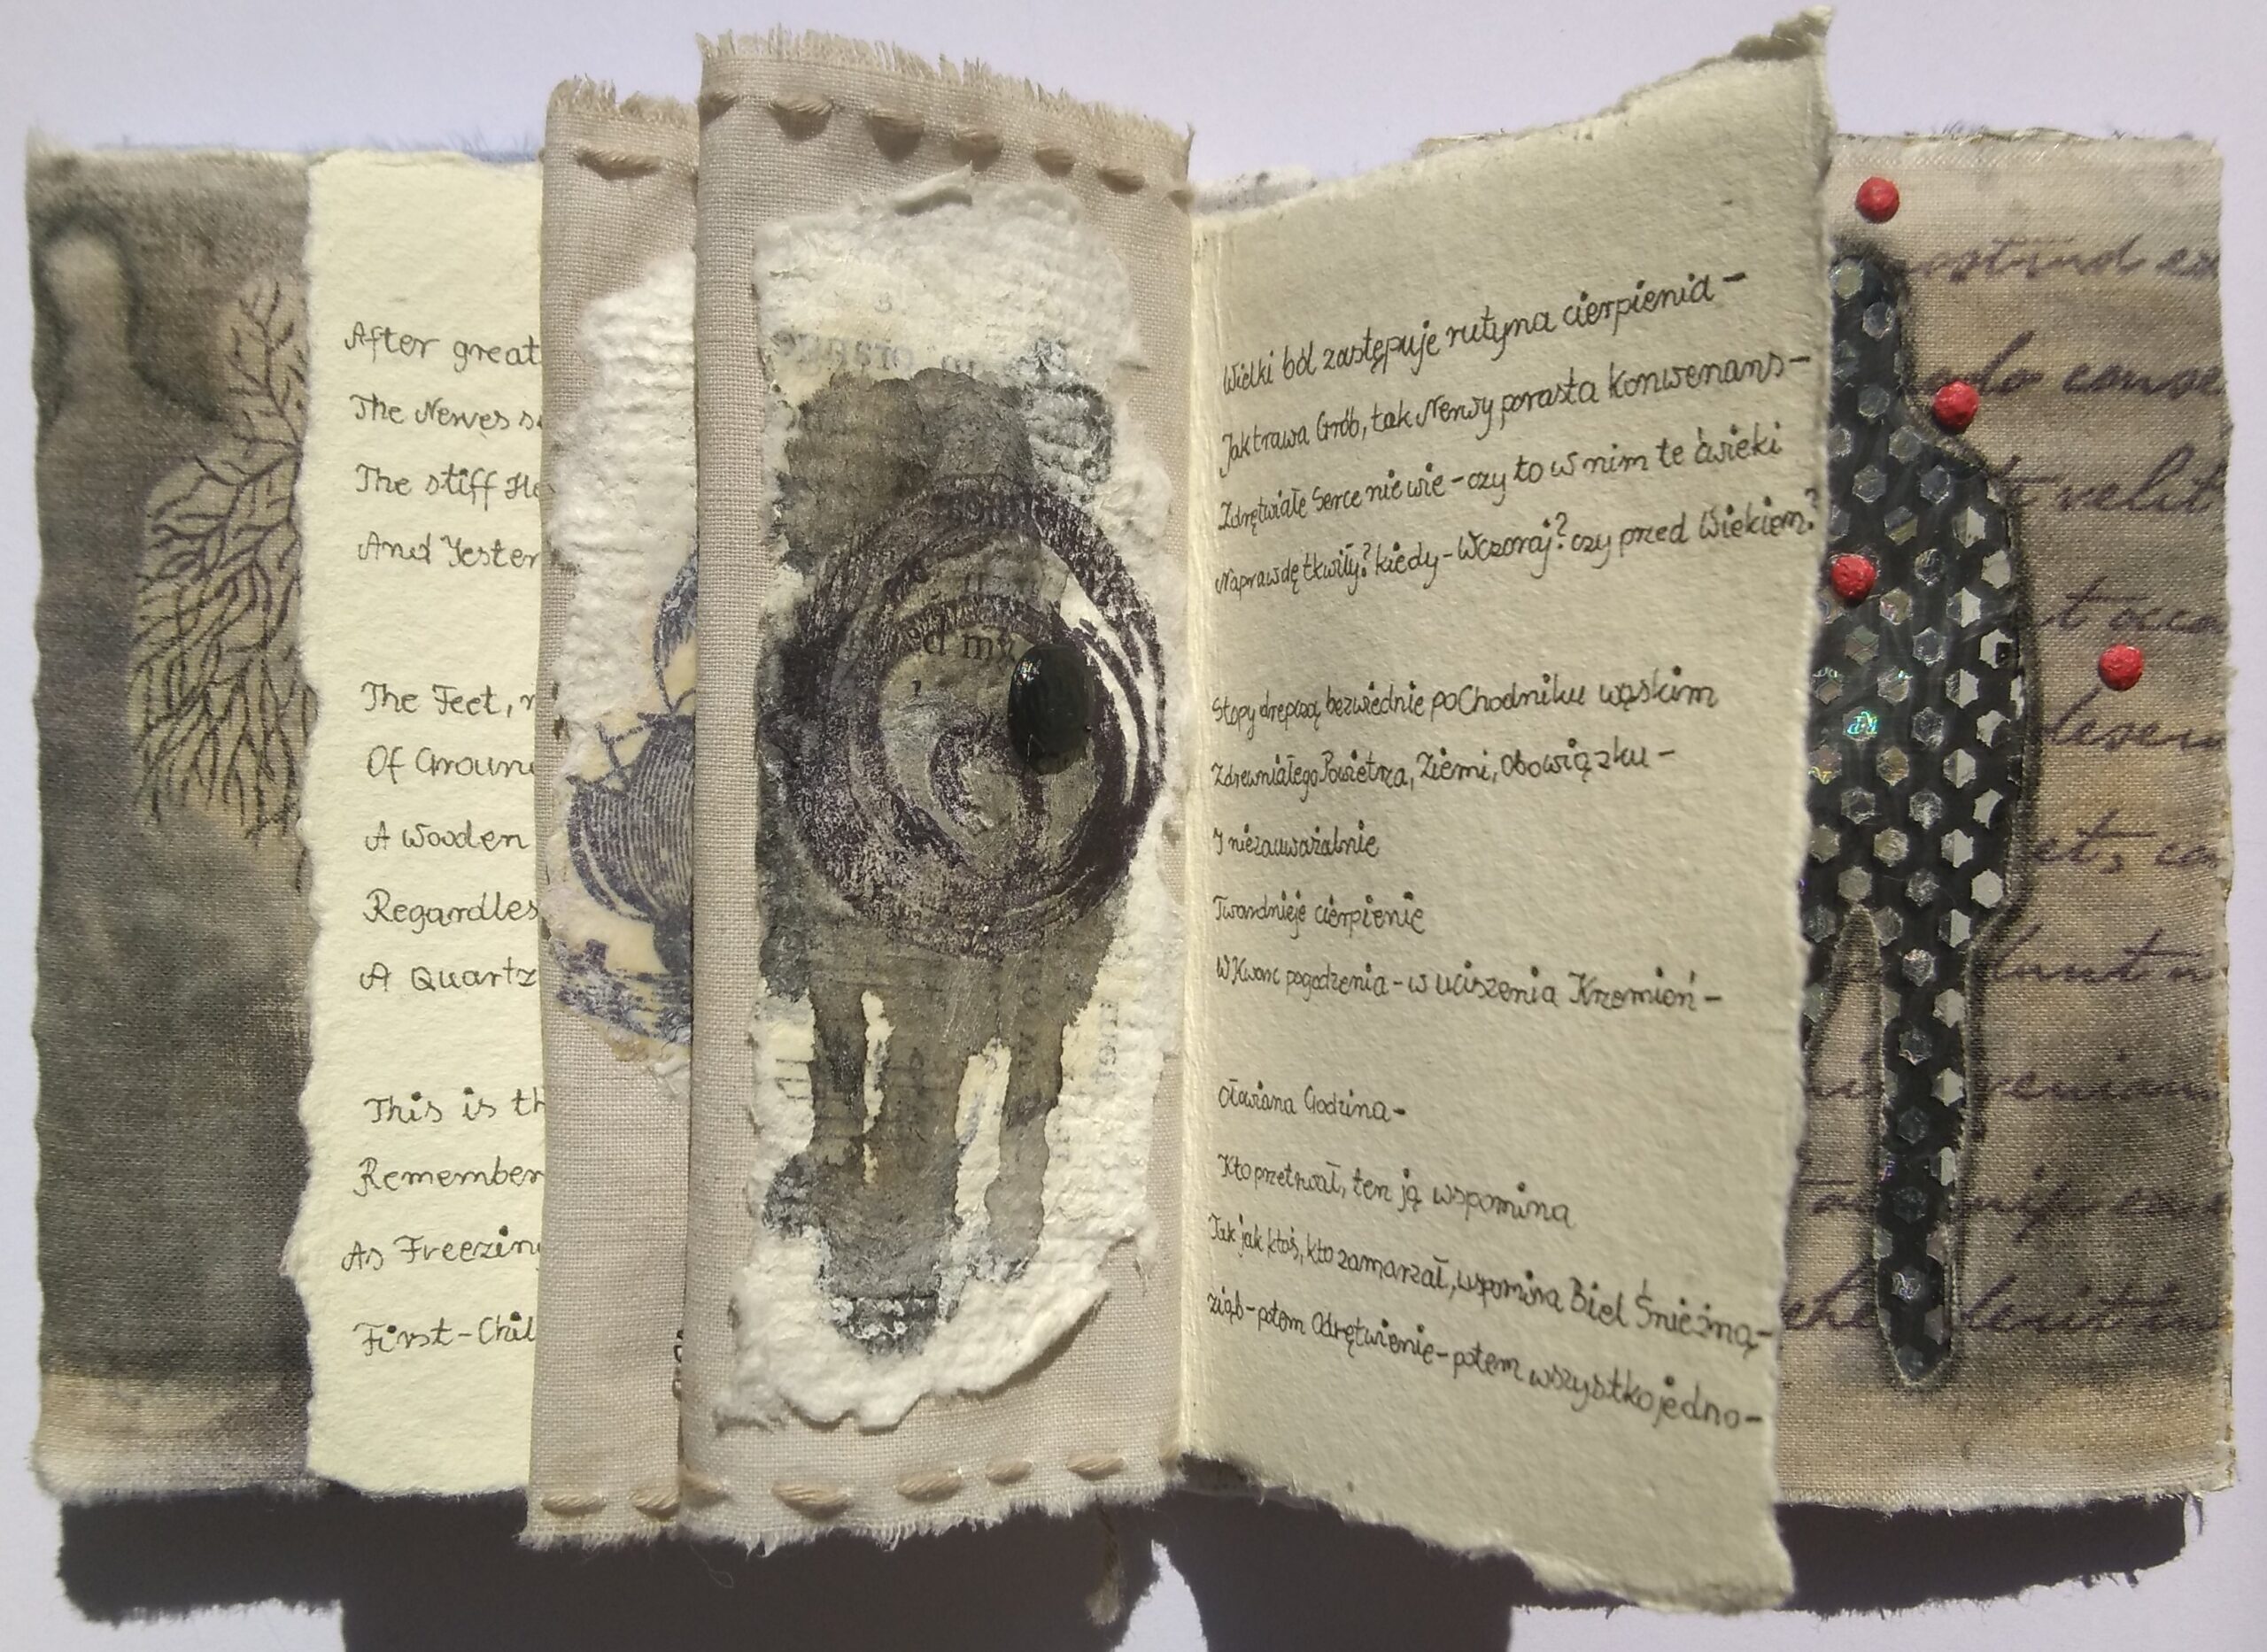 After great
The Nerves s
The stiff He
And Yester
The Feet, m
Of Groun
A Wooden
Regardles
A Quartz
This is th
Remember
As Freezing
First-Chil
d my
Wielki ból zastępuje rutyna cierpienia –
Jak trawa Grób, tak Nerwy porasta Konwenans –
Zdrętwiałe Serce nie wie – czy to w nim te ćwieki
Naprawdę tkwiły? kiedy – Wczoraj? czy przed Wiekiem?
Stopy drepczą bezwiednie po Chodniku wąskim
Zdrewniałego Powietrza, Ziemi, Obowiązku –
I niezauważalnie
Twardnieje cierpienie
W Kwarc pogodzenia – w uciszenia Krzemień –
Ołowiana Godzina –
Kto przetrwał, ten ją wspomina
Tak jak ktoś, kto zamarzał, wspomina Biel Śnieżną –
ziąb – potem Odrętwienie – potem wszystko jedno –
velit